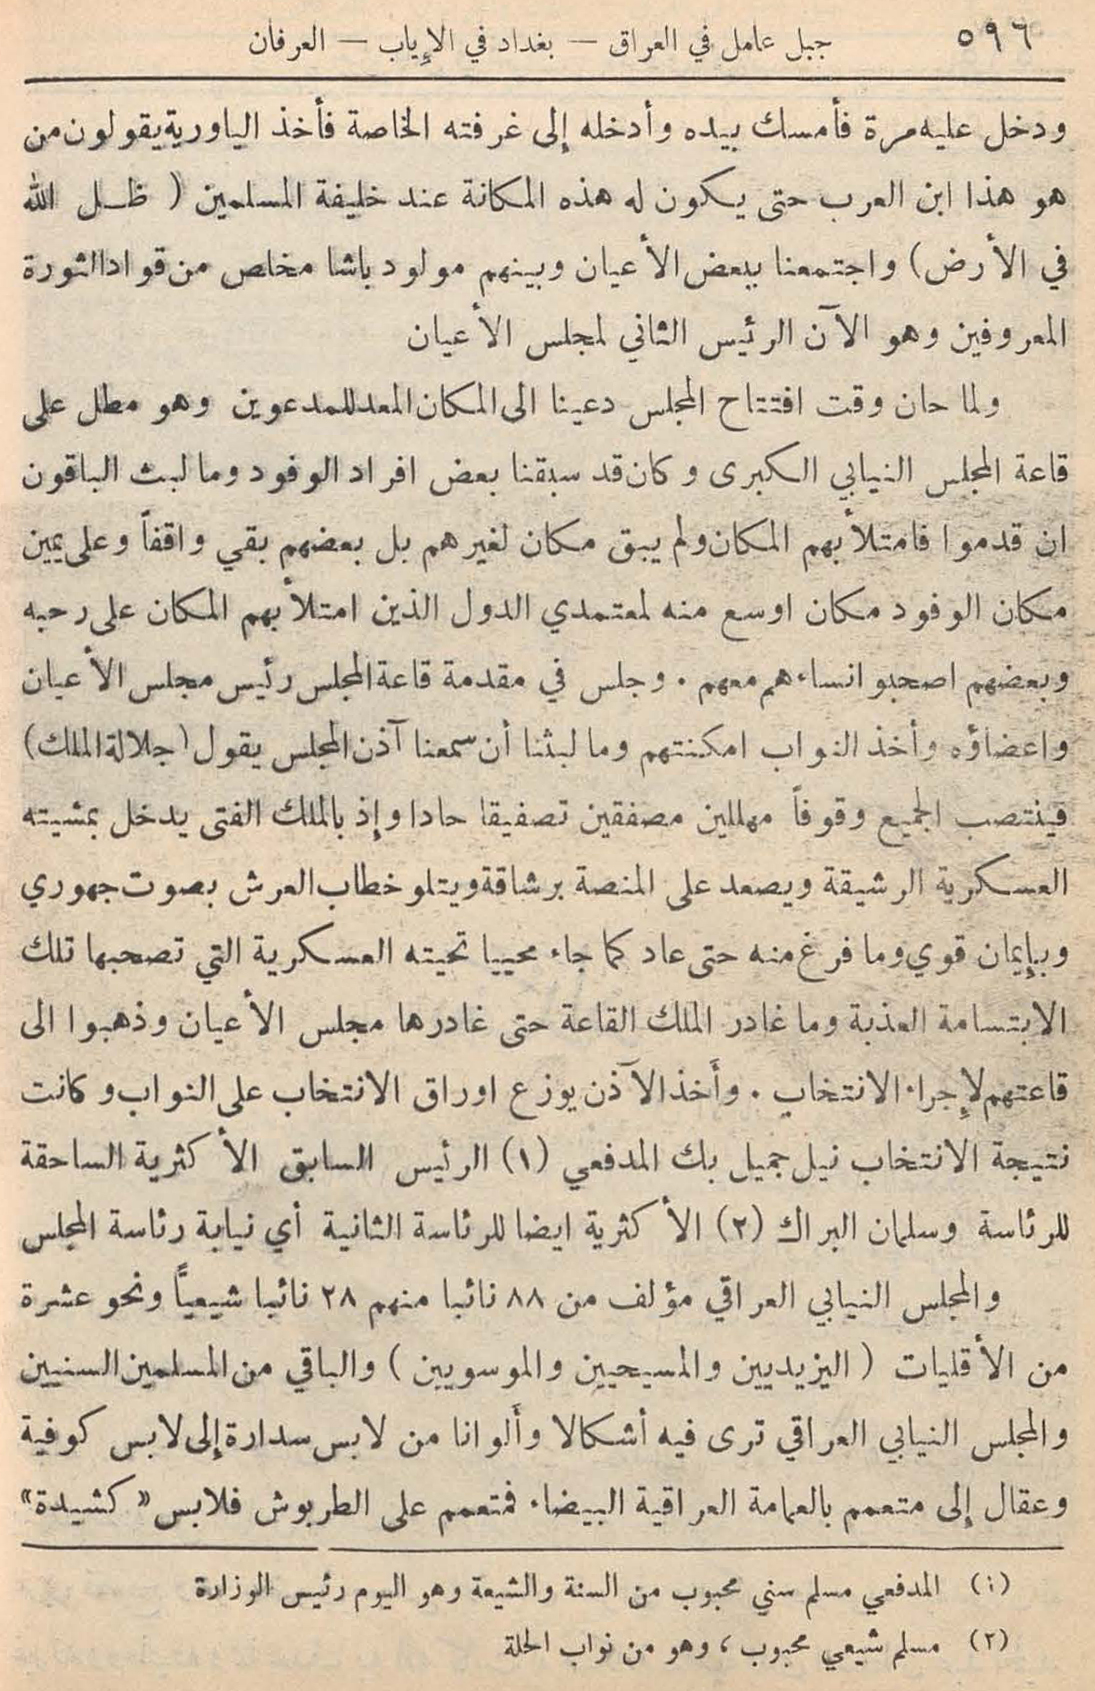 ٥٩٦
جبل عامل في العراق — بغداد في الإياب — العرفان
ودخل عليه مرة فأمسك بيده وأدخله إلى غرفته الخاصة فأخذ الياورية يقولون من
هو هذا ابن العرب حتى يكون له هذه المكانة عند خليفة المسلمين ( ظل الله
في الأرض) واجتمعنا ببعض الأعيان وبينهم مولود باشا مخلص من قواد الثورة
المعروفين وهو الآن الرئيس الثاني لمجلس الأعيان
ولما حان وقت افتتاح المجلس دعينا الى المكان المعد للمدعوين وهو مطل على
قاعة المجلس النيابي الكبرى وكان قد سبقنا بعض افراد الوفود وما لبث الباقون
ان قدموا فامتلأ بهم المكان ولم يبق مكان لغيرهم بل بعضهم بقي واقفاً وعلى يمين
مكان الوفود مكان اوسع منه لمعتمدي الدول الذين امتلأ بهم المكان على رحبه
وبعضهم اصحبوا نساءهم معهم . وجلس في مقدمة قاعة المجلس رئيس مجلس الأعيان
واعضاؤه وأخذ النواب امكنتهم وما لبثنا أن سمعنا آذن المجلس يقول (جلالة الملك)
فينتصب الجميع وقوفاً مهللين مصفقين تصفيقا حادا وإذ بالملك الفتى يدخل بمشيته
العسكرية الرشيقة ويصعد على المنصة برشاقة ويتلو خطاب العرش بصوت جهوري
وبإيمان قوي وما فرغ منه حتى عاد كما جاء محييا تحيته العسكرية التي تصحبها تلك
الابتسامة العذبة وما غادر الملك القاعة حتى غادرها مجلس الأعيان وذهبوا الى
قاعتهم لإجراء الانتخاب . وأخذ الآذن يوزع اوراق الانتخاب على النواب وكانت
نتيجة الانتخاب نيل جميل بك المدفعي (١) الرئيس السابق الأكثرية الساحقة
للرئاسة وسلمان البراك (٢) الأكثرية ايضا للرئاسة الثانية أي نيابة رئاسة المجلس
والمجلس النيابي العراقي مؤلف من ٨٨ نائبا منهم ٢٨ نائبا شيعياً ونحو عشرة
من الأقليات ( اليزيديين والمسيحيين والموسويين ) والباقي من المسلمين السنيين
والمجلس النيابي العراقي ترى فيه أشكالا وألوانا من لابس سدارة إلى لابس كوفية
وعقال إلى متعمم بالعمامة العراقية البيضاء فمتعمم على الطربوش فلابس «كشيدة»
(١) المدفعي مسلم سني محبوب من السنة والشيعة وهو اليوم رئيس الوزارة
(٢) مسلم شيعي محبوب ، وهو من نواب الحلة